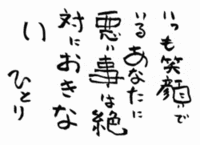 いつも笑顔で
いるあなたに
悪い事は絶
対におきな
い
ひとり